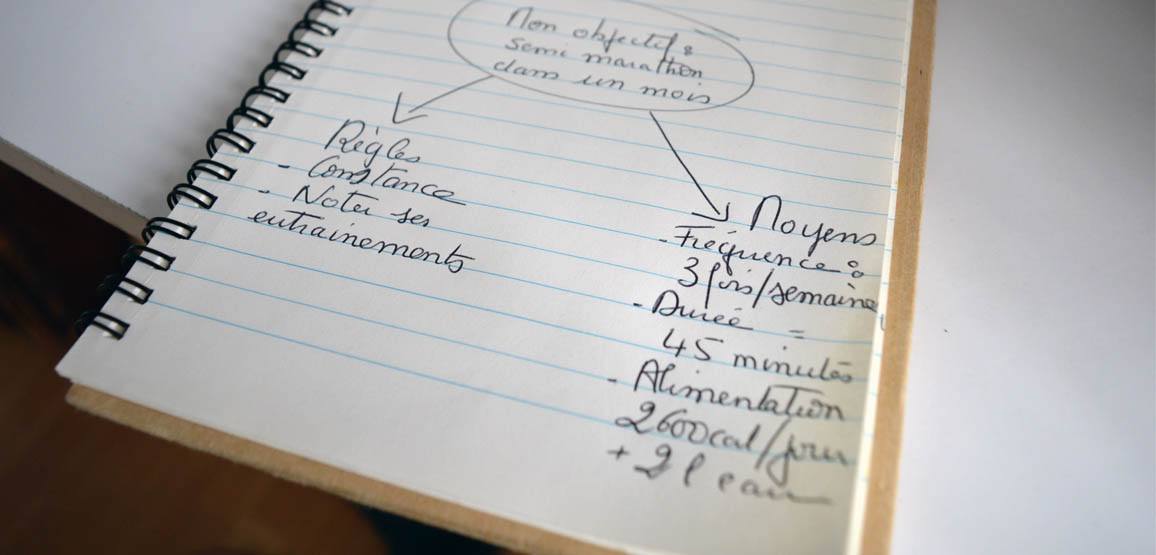 Mon objectif :
semi marathon
dans un mois
Règles
- Constance
- Noter ses
entrainements
Moyens
- Fréquence :
3 fois/semaine
- Durée =
45 minutes
- Alimentation
2600cal/jour
+ 2l eau